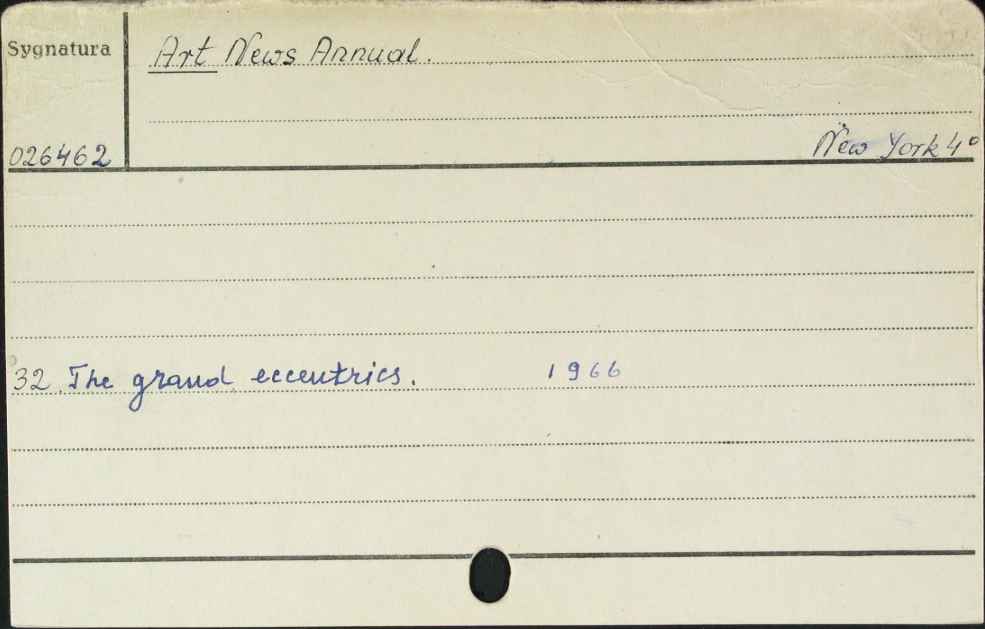 Sygnatura
Art News Annual.
026462
New York 4°
32 The grand eccentrics. 1966